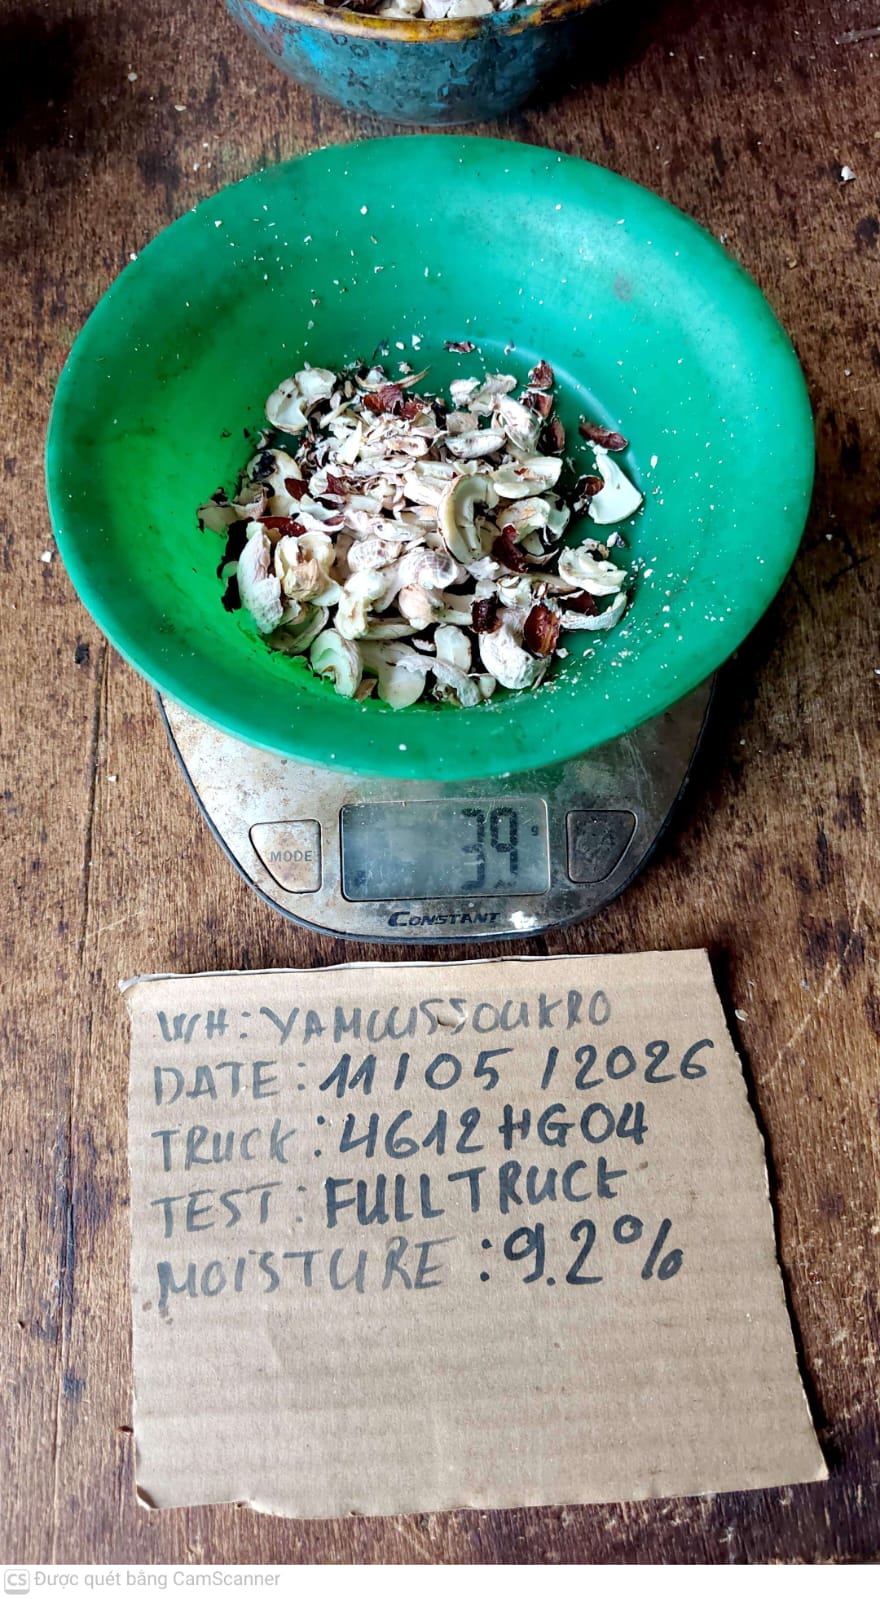 39 g
MODE
CONSTANT
WH: YAMOUSSOUKRO
DATE: 11/05/2026
TRUCK: 4612HG04
TEST: FULL TRUCK
MOISTURE: 9.2%
CS Được quét bằng CamScanner